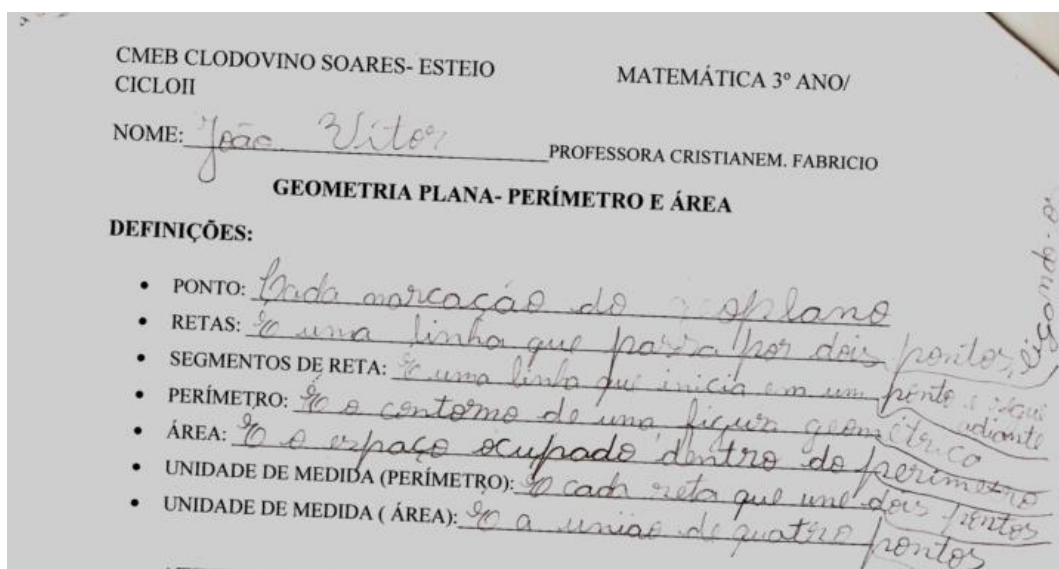 CMEB CLODOVINO SOARES- ESTEIO MATEMÁTICA 3º ANO/
CICLOII
NOME: João Vitor PROFESSORA CRISTIANEM. FABRICIO
GEOMETRIA PLANA- PERÍMETRO E ÁREA
DEFINIÇÕES:
• PONTO: Cada marcação do geoplano
• RETAS: É uma linha que passa por dois pontos, ligando-os
• SEGMENTOS DE RETA: É uma linha que inicia em um ponto e segue adiante
• PERÍMETRO: É o contorno de uma figura geométrica
• ÁREA: É o espaço ocupado dentro do perímetro
• UNIDADE DE MEDIDA (PERÍMETRO): É cada reta que une dois pontos
• UNIDADE DE MEDIDA ( ÁREA): É a união de quatro pontos